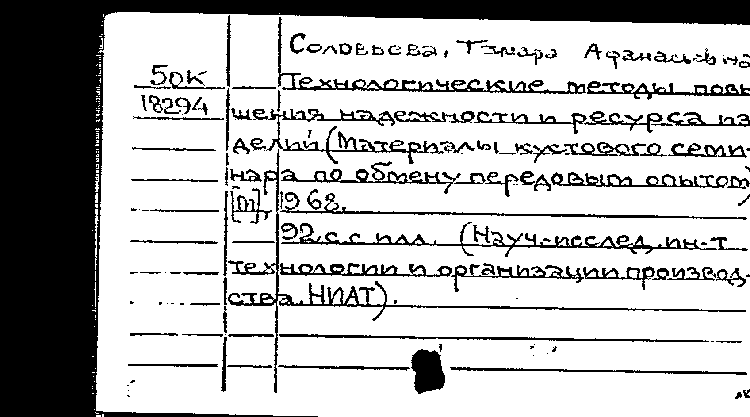 Соловьева, Тамара Афанасьевна
50к Технологические методы повы
18294 шения надежности и ресурса из
делий (Материалы кустового семи-
нара по обмену передовым опытом)
[М], 1968.
92 с. с илл. (Науч.-исслед. ин-т
технологии и организации производ-
ства. НИАТ).